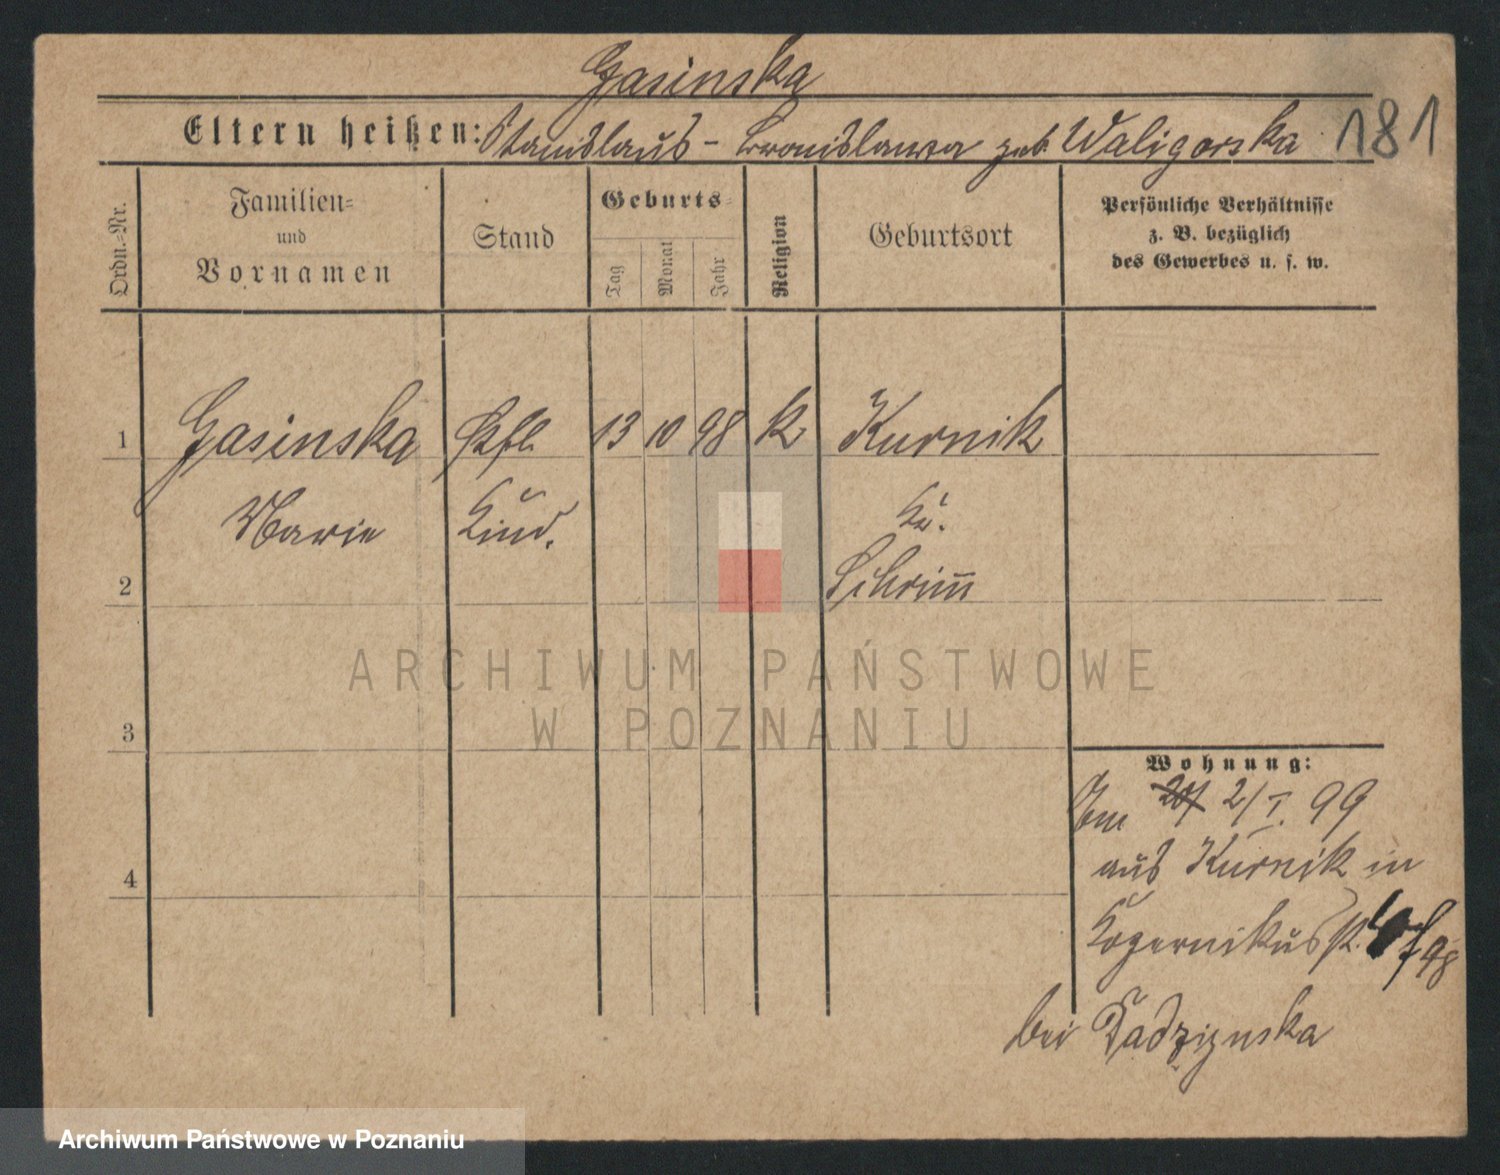 Gasinska
Eltern heißen: Stanislaus - Bronislawa geb. Waligorska 181
Ordn.-Nr.
Familien-
und
Vornamen
Stand
Geburts-
Tag
Monat
Jahr
Religion
Geburtsort
Persönliche Verhältnisse
z. B. bezüglich
des Gewerbes u. s. w.
1 Gasinska 13 10 98 k Kurnik
Marie Kind. Kr.
2 Schrimm
3
Wohnung:
Am 2/I. 99
aus Kurnik in
4
Kopernikus
bei Radzijnska
ARCHIWUM PAŃSTWOWE
W POZNANIU
Archiwum Państwowe w Poznaniu